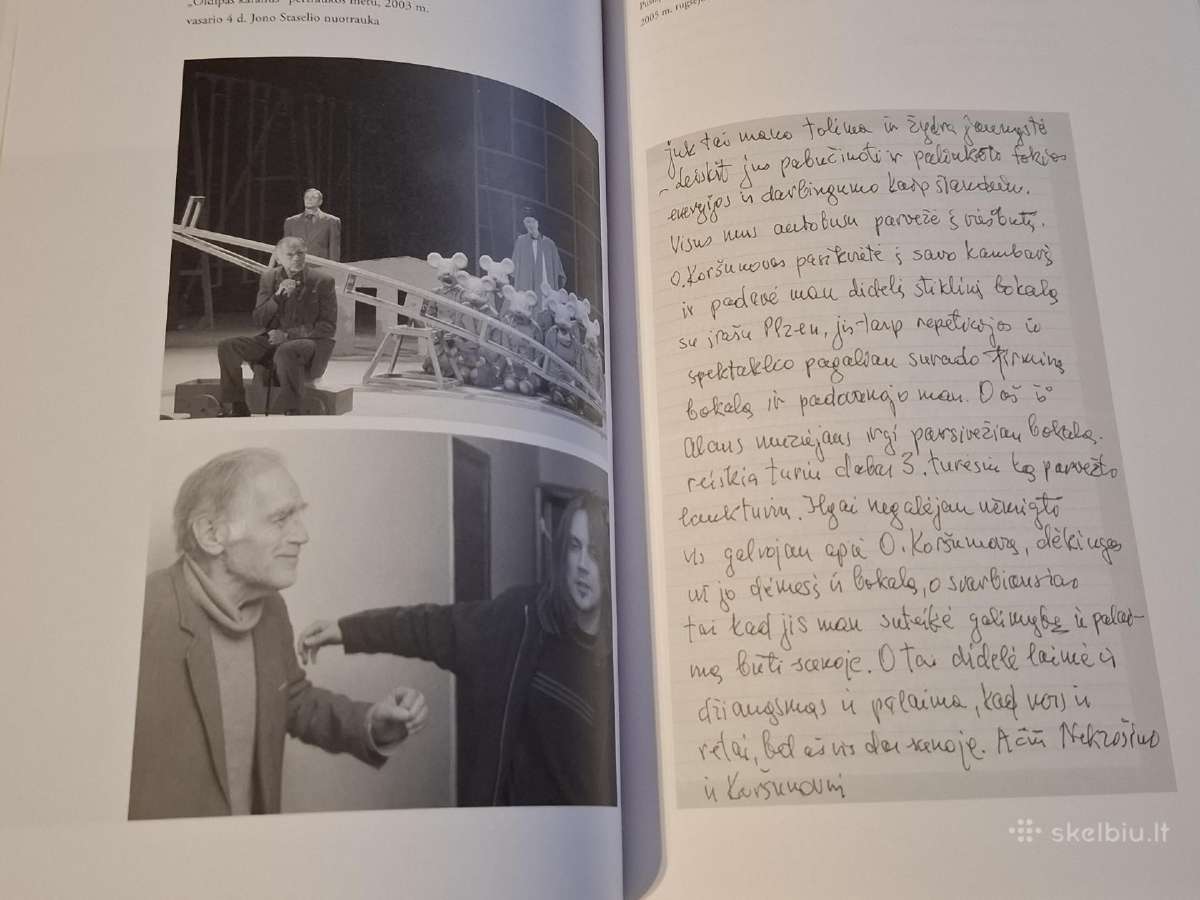 „Oidipas karalius“ pertraukos metu, 2003 m.
vasario 4 d. Jono Staselio nuotrauka
2005 m.
juk tai mano tolima ir žydra jaunystė
– Leiskit jus pabučiuoti ir palinkėti tokios
energijos ir darbingumo kaip šiandien.
Visus mus autobusu parvežė į viešbutį.
O. Koršunovas pasikvietė į savo kambarį
ir padavė man didelį stiklinį bokalą
su įrašu Plzen, jis tarp repeticijos ir
spektaklio pagaliau surado firminį
bokalą ir padovanojo man. O aš iš
Alaus muziejaus irgi parsivežiau bokalą.
reiškia turiu dabar 3. turėsiu ką parvežti
lauktuvių. Ilgai negalėjau užmigti
vis galvojau apie O. Koršunovą, dėkingas
už jo dėmesį ir bokalą, o svarbiausia
tai kad jis man suteikė galimybę ir palai-
mą būti scenoje. O tai didelė laimė ir
džiaugsmas ir palaima, kad nors ir
retai, bet aš vis dar scenoje. Ačiū Nekrošiui
ir Koršunovui
skelbiu.lt